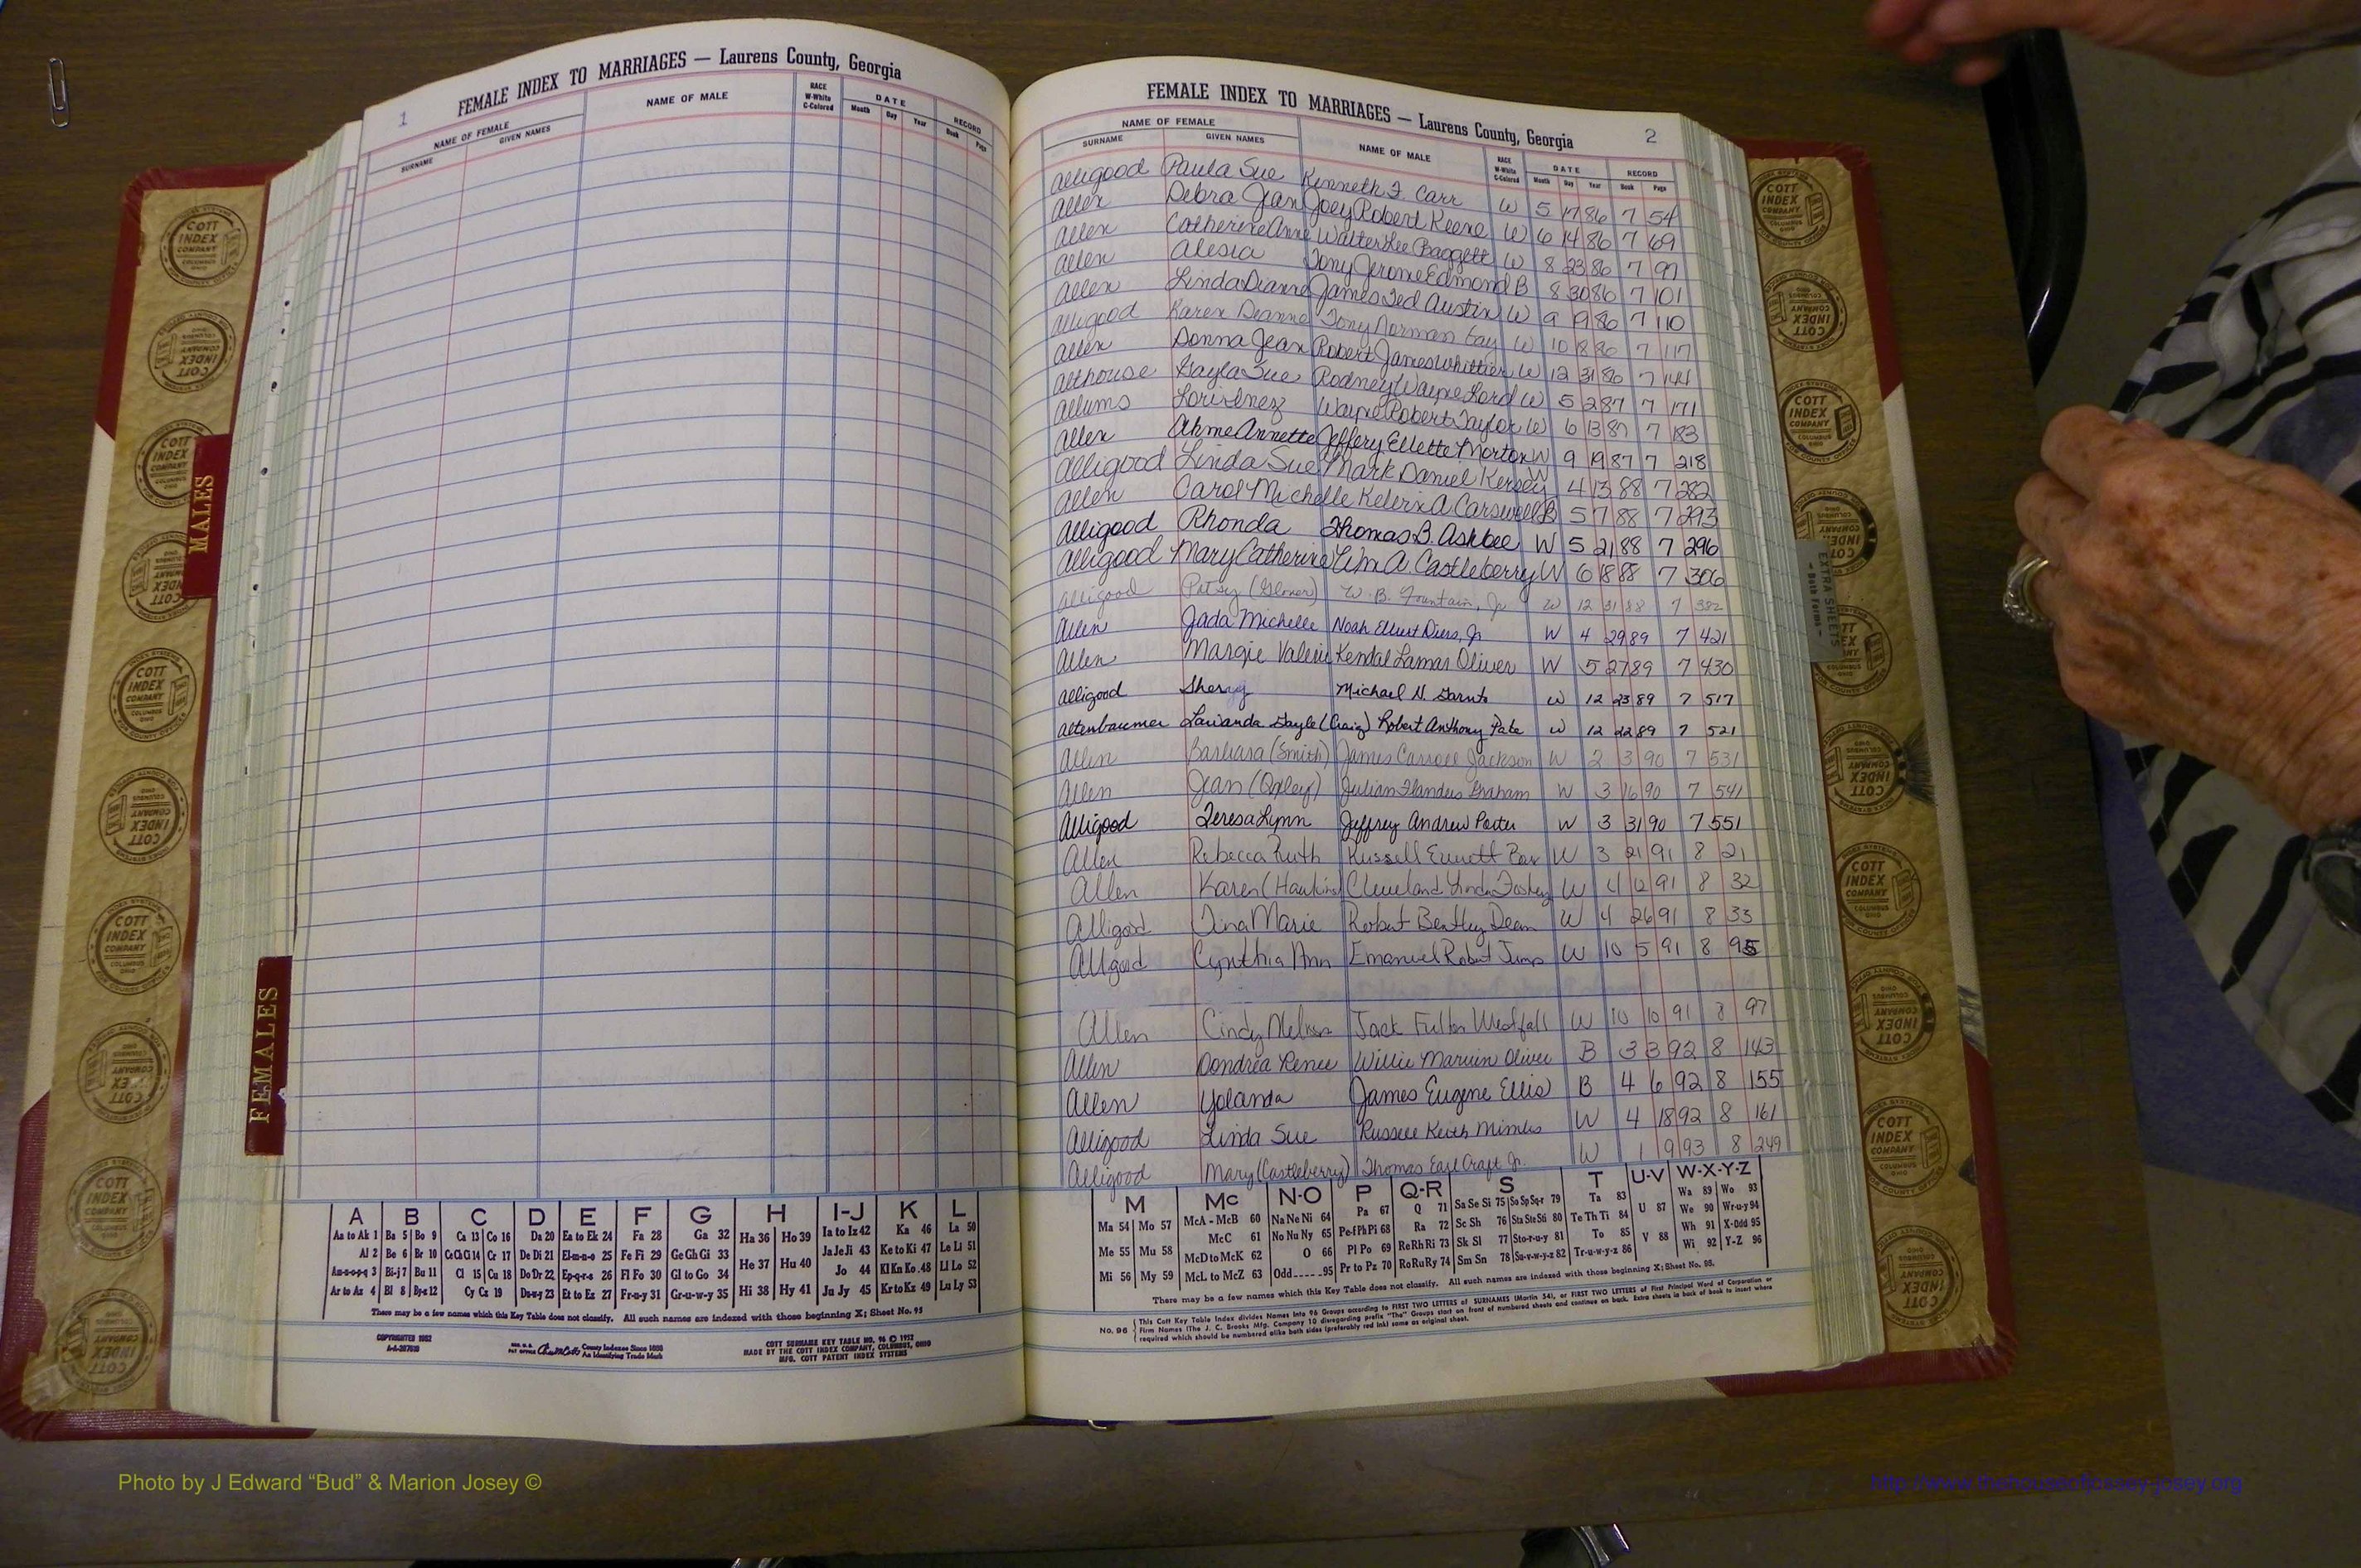 1
FEMALE INDEX TO MARRIAGES — Laurens County, Georgia
NAME OF FEMALE
SURNAME GIVEN NAMES NAME OF MALE RACE W-White C-Colored DATE Month Day Year RECORD Book Page
A B C D E F G H I-J K L
Aa to Ak 1 Ba 5 Bo 9 Ca 13 Co 16 Da 20 Ea to Ek 24 Fa 28 Ga 32 Ha 36 Ho 39 Ia to Iz 42 Ka 46 La 50
Al 2 Be 6 Br 10 Ce Ch G 14 Cr 17 De Di 21 El-m-n-o 25 Fe Fi 29 Ge Gh Gi 33 He 37 Hu 40 Ja Je Ji 43 Ke to Ki 47 Le Li 51
Am-n-o-p-q 3 Bi-j 7 Bu 11 Cl 15 Cu 18 Do Dr 22 Ep-q-r-s 26 Fl Fo 30 Gl to Go 34 Hi 38 Hy 41 Jo 44 Kl Kn Ko 48 Ll Lo 52
Ar to Az 4 Bl 8 By-z 12 Cy Cz 19 Du-w-y 23 Et to Ez 27 Fr-u-y 31 Gr-u-w-y 35 Ju Jy 45 Kr to Kz 49 Lu Ly 53
There may be a few names which this Key Table does not classify. All such names are indexed with those beginning X; Sheet No. 95
COPYRIGHTED 1952
County Indexes Since 1888
An Identifying Trade Mark
COTT SURNAME KEY TABLE NO. 96 © 1952
MADE BY THE COTT INDEX COMPANY, COLUMBUS, OHIO
MFG. COTT PATENT INDEX SYSTEMS
FEMALE INDEX TO MARRIAGES — Laurens County, Georgia
2
NAME OF FEMALE
SURNAME GIVEN NAMES NAME OF MALE RACE W-White C-Colored DATE Month Day Year RECORD Book Page
Alligood Paula Sue Kenneth F. Carr W 5 17 86 7 54
Allen Debra Jean Joey Robert Keene W 6 14 86 7 69
Allen Catherine Anne Walter Lee Baggett W 8 23 86 7 97
Allen Alesia Tony Jerome Edmond B 8 30 86 7 101
Allen Linda Dianne James Ted Austin W 9 9 86 7 110
Alligood Karen Deanne Tony Norman W 10 86 7 117
Allen Donna Jean Robert James Whittier W 12 31 86 7 144
Althouse Kayla Sue Rodney Wayne Lord W 5 2 87 7 171
Allums Lori Inez Wayne Robert Taylor W 6 13 87 7 183
Allen Ahme Annette Jeffery Ellette Morton W 9 19 87 7 218
Alligood Linda Sue Mark Daniel Kersey W 4 13 88 7 282
Allen Carol Michelle A. Carswell B 5 7 88 7 293
Alligood Rhonda Thomas B. Ashbee W 5 21 88 7 296
Alligood Mary Catherine Wm A. Castleberry W 6 18 88 7 306
Alligood Patsy (Glover) W. B. Fountain, Jr W 12 31 88 7 382
Allen Jada Michelle Noah Elbert Diers, Jr W 4 29 89 7 421
Allen Margie Valerie Kendal Lamar Oliver W 5 27 89 7 430
Alligood Sherry Michael N. Garnto W 12 23 89 7 517
Altenbaumer Lawanda Gayle (Craig) Robert Anthony Pate W 12 22 89 7 521
Allen Barbara (Smith) James Carroll Jackson W 2 3 90 7 531
Allen Jean (Ogley) Julian Flanders Graham W 3 16 90 7 541
Alligood Teresa Lynn Jeffrey Andrew Porter W 3 31 90 7 551
Allen Rebecca Ruth Russell Emmett W 3 21 91 8 21
Allen Karen (Hawkins) Cleveland W 4 12 91 8 32
Alligood Tina Marie Robert Bentley Dean W 4 26 91 8 33
Allgood Cynthia Ann Emanuel Robert W 10 5 91 8 95
Allen Cindy Jack Fulton Westfall W 10 10 91 8 97
Allen Dondrea Renee Willie Marvin Oliver B 3 3 92 8 143
Allen Yolanda James Eugene Ellis B 4 6 92 8 155
Alligood Linda Sue Russell Keith Mimbs W 4 18 92 8 161
Alligood Mary (Castleberry) Thomas Earl Craft Jr. W 1 9 93 8 249
M Mc N-O P Q-R S T U-V W-X-Y-Z
Ma 54 Mo 57 McA - McB 60 Na Ne Ni 64 Pa 67 Q 71 Sa Se Si 75 So Sp Sq-r 79 Ta 83 U 87 Wa 89 Wo 93
Me 55 Mu 58 McC 61 No Nu Ny 65 Pe-f Ph Pi 68 Ra 72 Sc Sh 76 Sta Ste Sti 80 Te Th Ti 84 V 88 We 90 Wr-u-y 94
Mi 56 My 59 McD to McK 62 O 66 Pl Po 69 Re Rh Ri 73 Sk Sl 77 Sto-r-u-y 81 To 85 Wh 91 X-Odd 95
McL to McZ 63 Odd.....95 Pr to Pz 70 Ro Ru Ry 74 Sm Sn 78 Su-v-w-y-z 82 Tr-u-w-y-z 86 Wi 92 Y-Z 96
There may be a few names which this Key Table does not classify. All such names are indexed with those beginning X; Sheet No. 95.
No. 96
This Cott Key Table Index divides Names into 96 Groups according to FIRST TWO LETTERS of SURNAMES (Martin 54), or FIRST TWO LETTERS of First Principal Word of Corporation or
Firm Names (The J. C. Brooks Mfg. Company 10 disregarding prefix "The" Groups start on front of numbered sheets and continue on back. Extra sheets in back of book to insert where
required which should be numbered alike both sides (preferably red ink) same as original sheet.
MALES
FEMALES
EXTRA SHEETS
— Both Forms —
COTT INDEX COMPANY COLUMBUS OHIO
Photo by J Edward “Bud” & Marion Josey ©
http://www.thehouseofjossey-josey.org